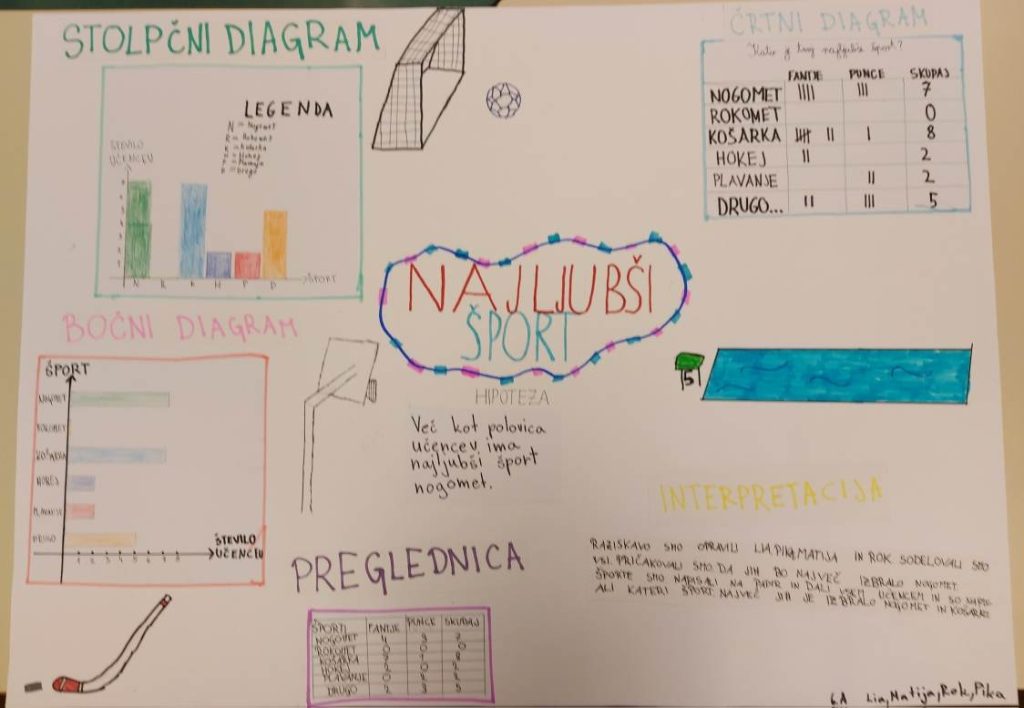 STOLPČNI DIAGRAM
LEGENDA
N = Nogomet
R = Rokomet
K = Košarka
H = Hokej
P = Plavanje
D = Drugo
ŠTEVILO
UČENCEV
N R K H P D
ŠPORT
ČRTNI DIAGRAM
Kateri je tvoj najljubši šport?
FANTJE PUNCE SKUPAJ
NOGOMET IIII III 7
ROKOMET 0
KOŠARKA IIII II I 8
HOKEJ II 2
PLAVANJE II 2
DRUGO... II III 5
NAJLJUBŠI
ŠPORT
BOČNI DIAGRAM
ŠPORT
NOGOMET
ROKOMET
KOŠARKA
HOKEJ
PLAVANJE
DRUGO
1 2 3 4 5 6 7 8
ŠTEVILO
UČENCEV
HIPOTEZA
Več kot polovica
učencev ima
najljubši šport
nogomet.
5
PREGLEDNICA
ŠPORTI FANTJE PUNCE SKUPAJ
NOGOMET 4 3
ROKOMET 0 0
KOŠARKA
HOKEJ
PLAVANJE
DRUGO 2 3 5
INTERPRETACIJA
RAZISKAVO SMO OPRAVILI LIA, PIKA, MATIJA IN ROK. SODELOVALI SMO
VSI. PRIČAKOVALI SMO DA JIH BO NAJVEČ IZBRALO NOGOMET.
ŠPORTE SMO NAPISALI NA PAPIR IN DALI VSEM UČENCEM IN SO NAPIS-
ALI KATERI ŠPORT. NAJVEČ JIH JE IZBRALO NOGOMET IN KOŠARKO.
6.A Lia, Matija, Rok, Pika